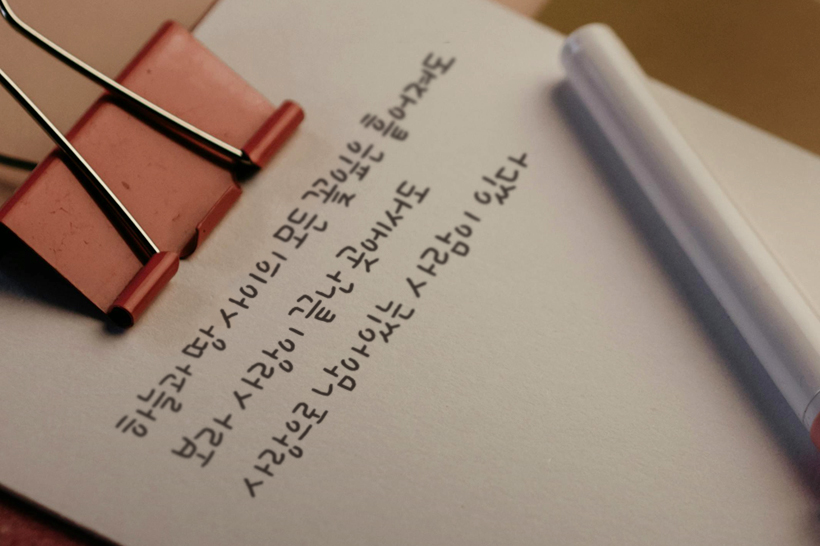 하늘과 땅 사이의 모든 꽃잎은 흩어져도
보라 사랑이 끝난 곳에서도
사랑으로 남아있는 사람이 있다